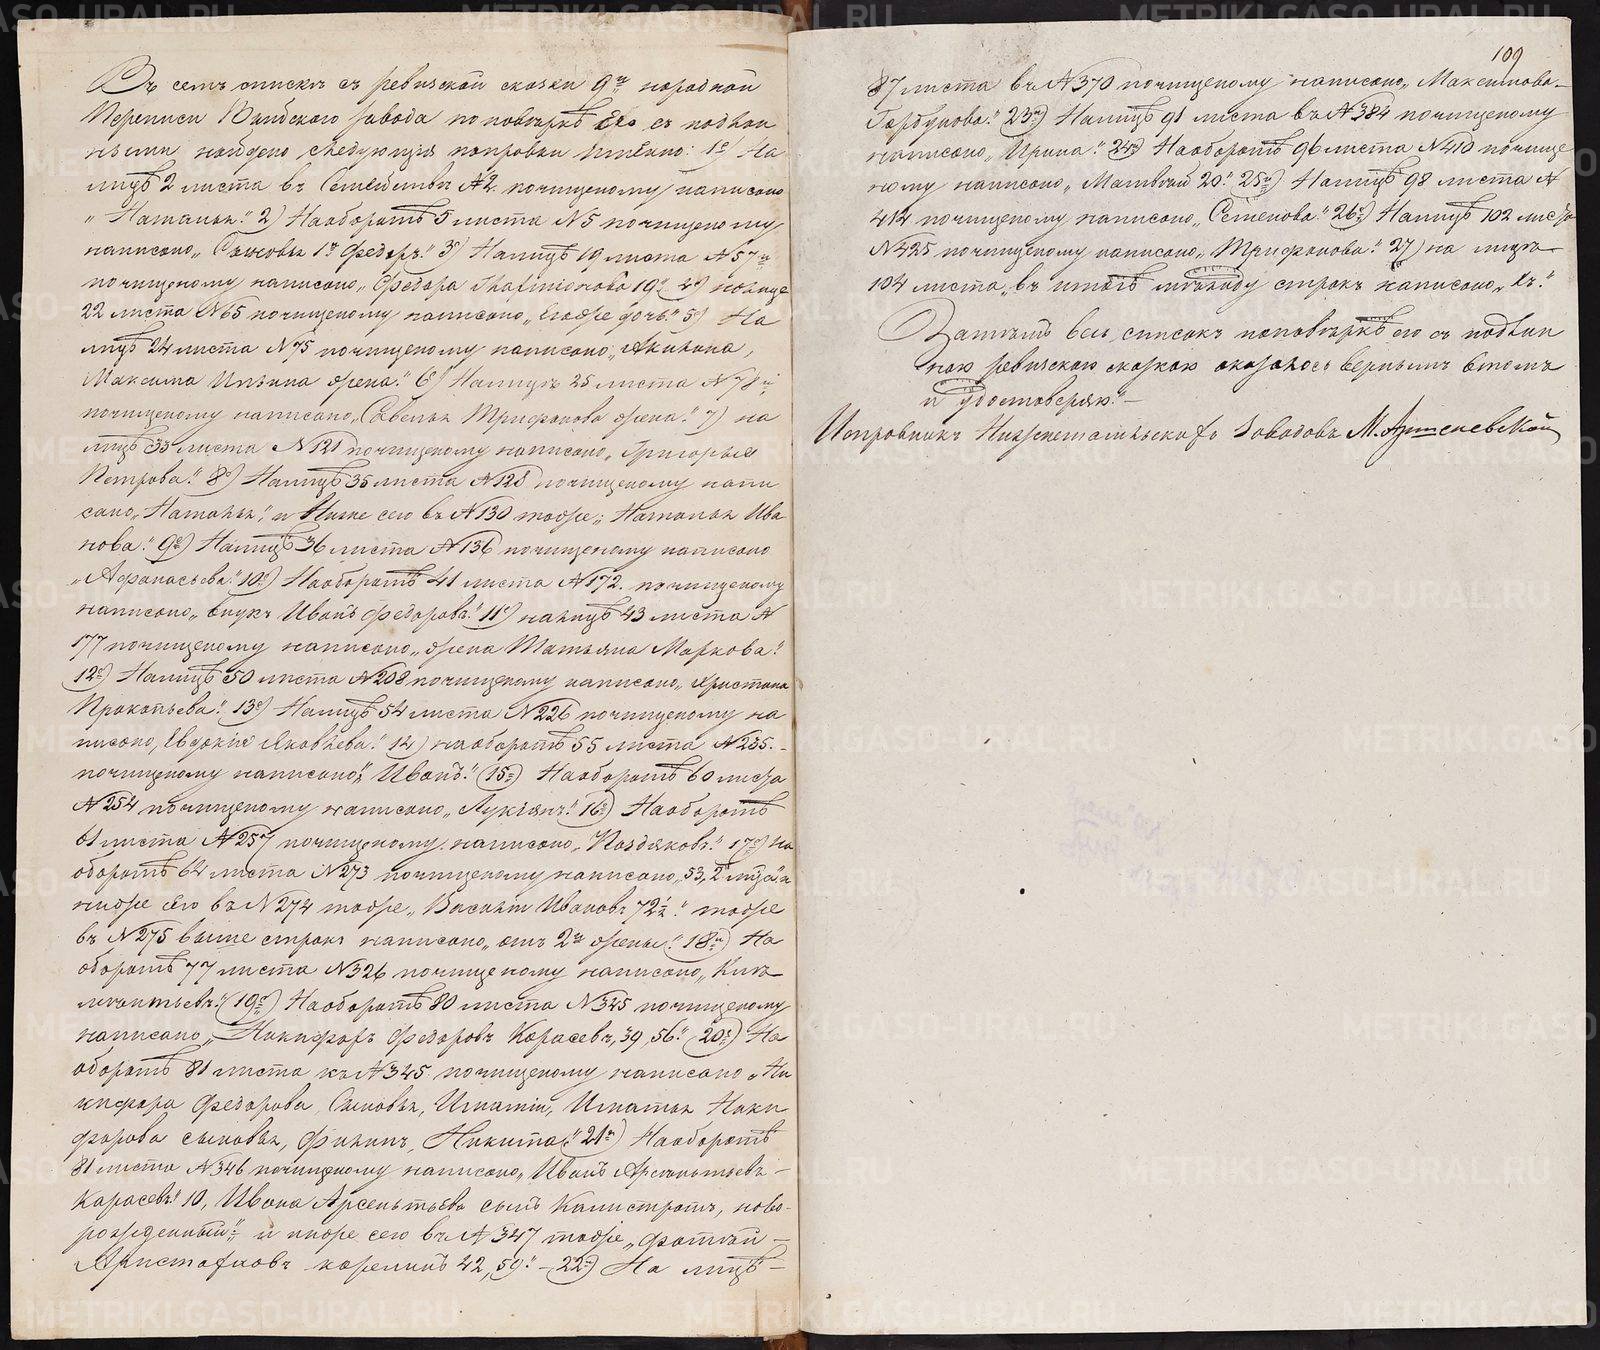 Въ семъ списке съ ревизской сказки 9й народной
Переписи Выйскаго завода по поверкѣ Его съ подлин
ными найдено следующія поправки имѣнно: 1е) На
лицѣ 2 листа въ Семейныхъ №2. почищеному написано
„Наталья." 2) На оборотѣ 5 листа №5 почищеному
написано „Сыновья 1й Федоръ." 3е) На лицѣ 19 листа №57й
почищеному написано „Федора 19" 4е) на лице
22 листа №65 почищеному написано „Его же дочь." 5е) На
лицѣ 24 листа №75 почищеному написано „Акилина,
Максима Ильина жена." 6е) На лицѣ 25 листа №78й
почищеному написано „Савелья Трифонова жена." 7) на
лицѣ 33 листа №121 почищеному написано „Григорья
Петрова." 8е) На лицѣ 35 листа №128 почищеному напи
сано „Наталья," и Ниже сего въ №130 тоже „Наталья Ива
нова." 9е) На лицѣ 36 листа №136 почищеному написано
„Афанасьева." 10е) На оборотѣ 41 листа №172. почищеному
написано „внукъ Иванъ Федоровъ." 11е) на лицѣ 43 листа №
177 почищеному написано „жена Татьяна Маркова."
12е) На лицѣ 50 листа №208 почищеному написано „Христина
Прокопьева." 13е) На лицѣ 54 листа №226 почищеному на
писано, Евдокія Яковлева." 14) на оборотѣ 55 листа №235.-
почищеному написано „Иванъ." 15е) На оборотѣ 60 листа
№254 почищеному написано „Лукіянъ." 16е) На оборотѣ
61 листа №257 почищеному написано „Поздяковъ." 17е) На
оборотѣ 64 листа №273 почищеному написано „53, 2
ниже сего въ №274 тоже „Василій Ивановъ 72½." тоже
въ №275 выше строкъ написано „отъ 2й жены." 18й) На
оборотѣ 77 листа №326 почищеному написано „Кли
ментьевъ." 19е) На оборотѣ 80 листа №345 почищеному
написано „Никифоръ Федоровъ Карасевъ, 39, 56." 20е) На
оборотѣ 81 листа къ №345 почищеному написано „Ни
кифора Федорова Сыновья, Игнатій, Игнатья Ники
форова сыновья, Филипъ, Никита." 21й) На оборотѣ
81 листа №346 почищеному написано „Иванъ Арсентьевъ-
Карасевъ" 10, Ивана Арсентьева сынъ Калистратъ, ново-
рожденный" и ниже сего въ №347 тоже „Фотей -
Аристафновъ карелинъ 42, 59." - 22е) На лицѣ -
109
87 листа въ №370 почищеному написано „Максимова-
Горбунова." 23й) На лицѣ 91 листа въ №384 почищеному
написано „Ирина." 24е) На оборотѣ 96 листа №410 почище
ному написано „Матвей 20." 25й) На лицѣ 98 листа №
414 почищеному написано „Семенова." 26е) На лицѣ 102 листа
№425 почищеному написано „Трифонова." 27) на лицѣ
104 листа „въ итогѣ между строкъ написано „хъ."
Затемъ весь списокъ по поверкѣ его съ подлин
ною ревизскою сказкою оказалось вернымъ в томъ
и удостоверяю."-
Исправникъ Нижнетагильскихъ Заводовъ
METRIKI.GASO-URAL.RU